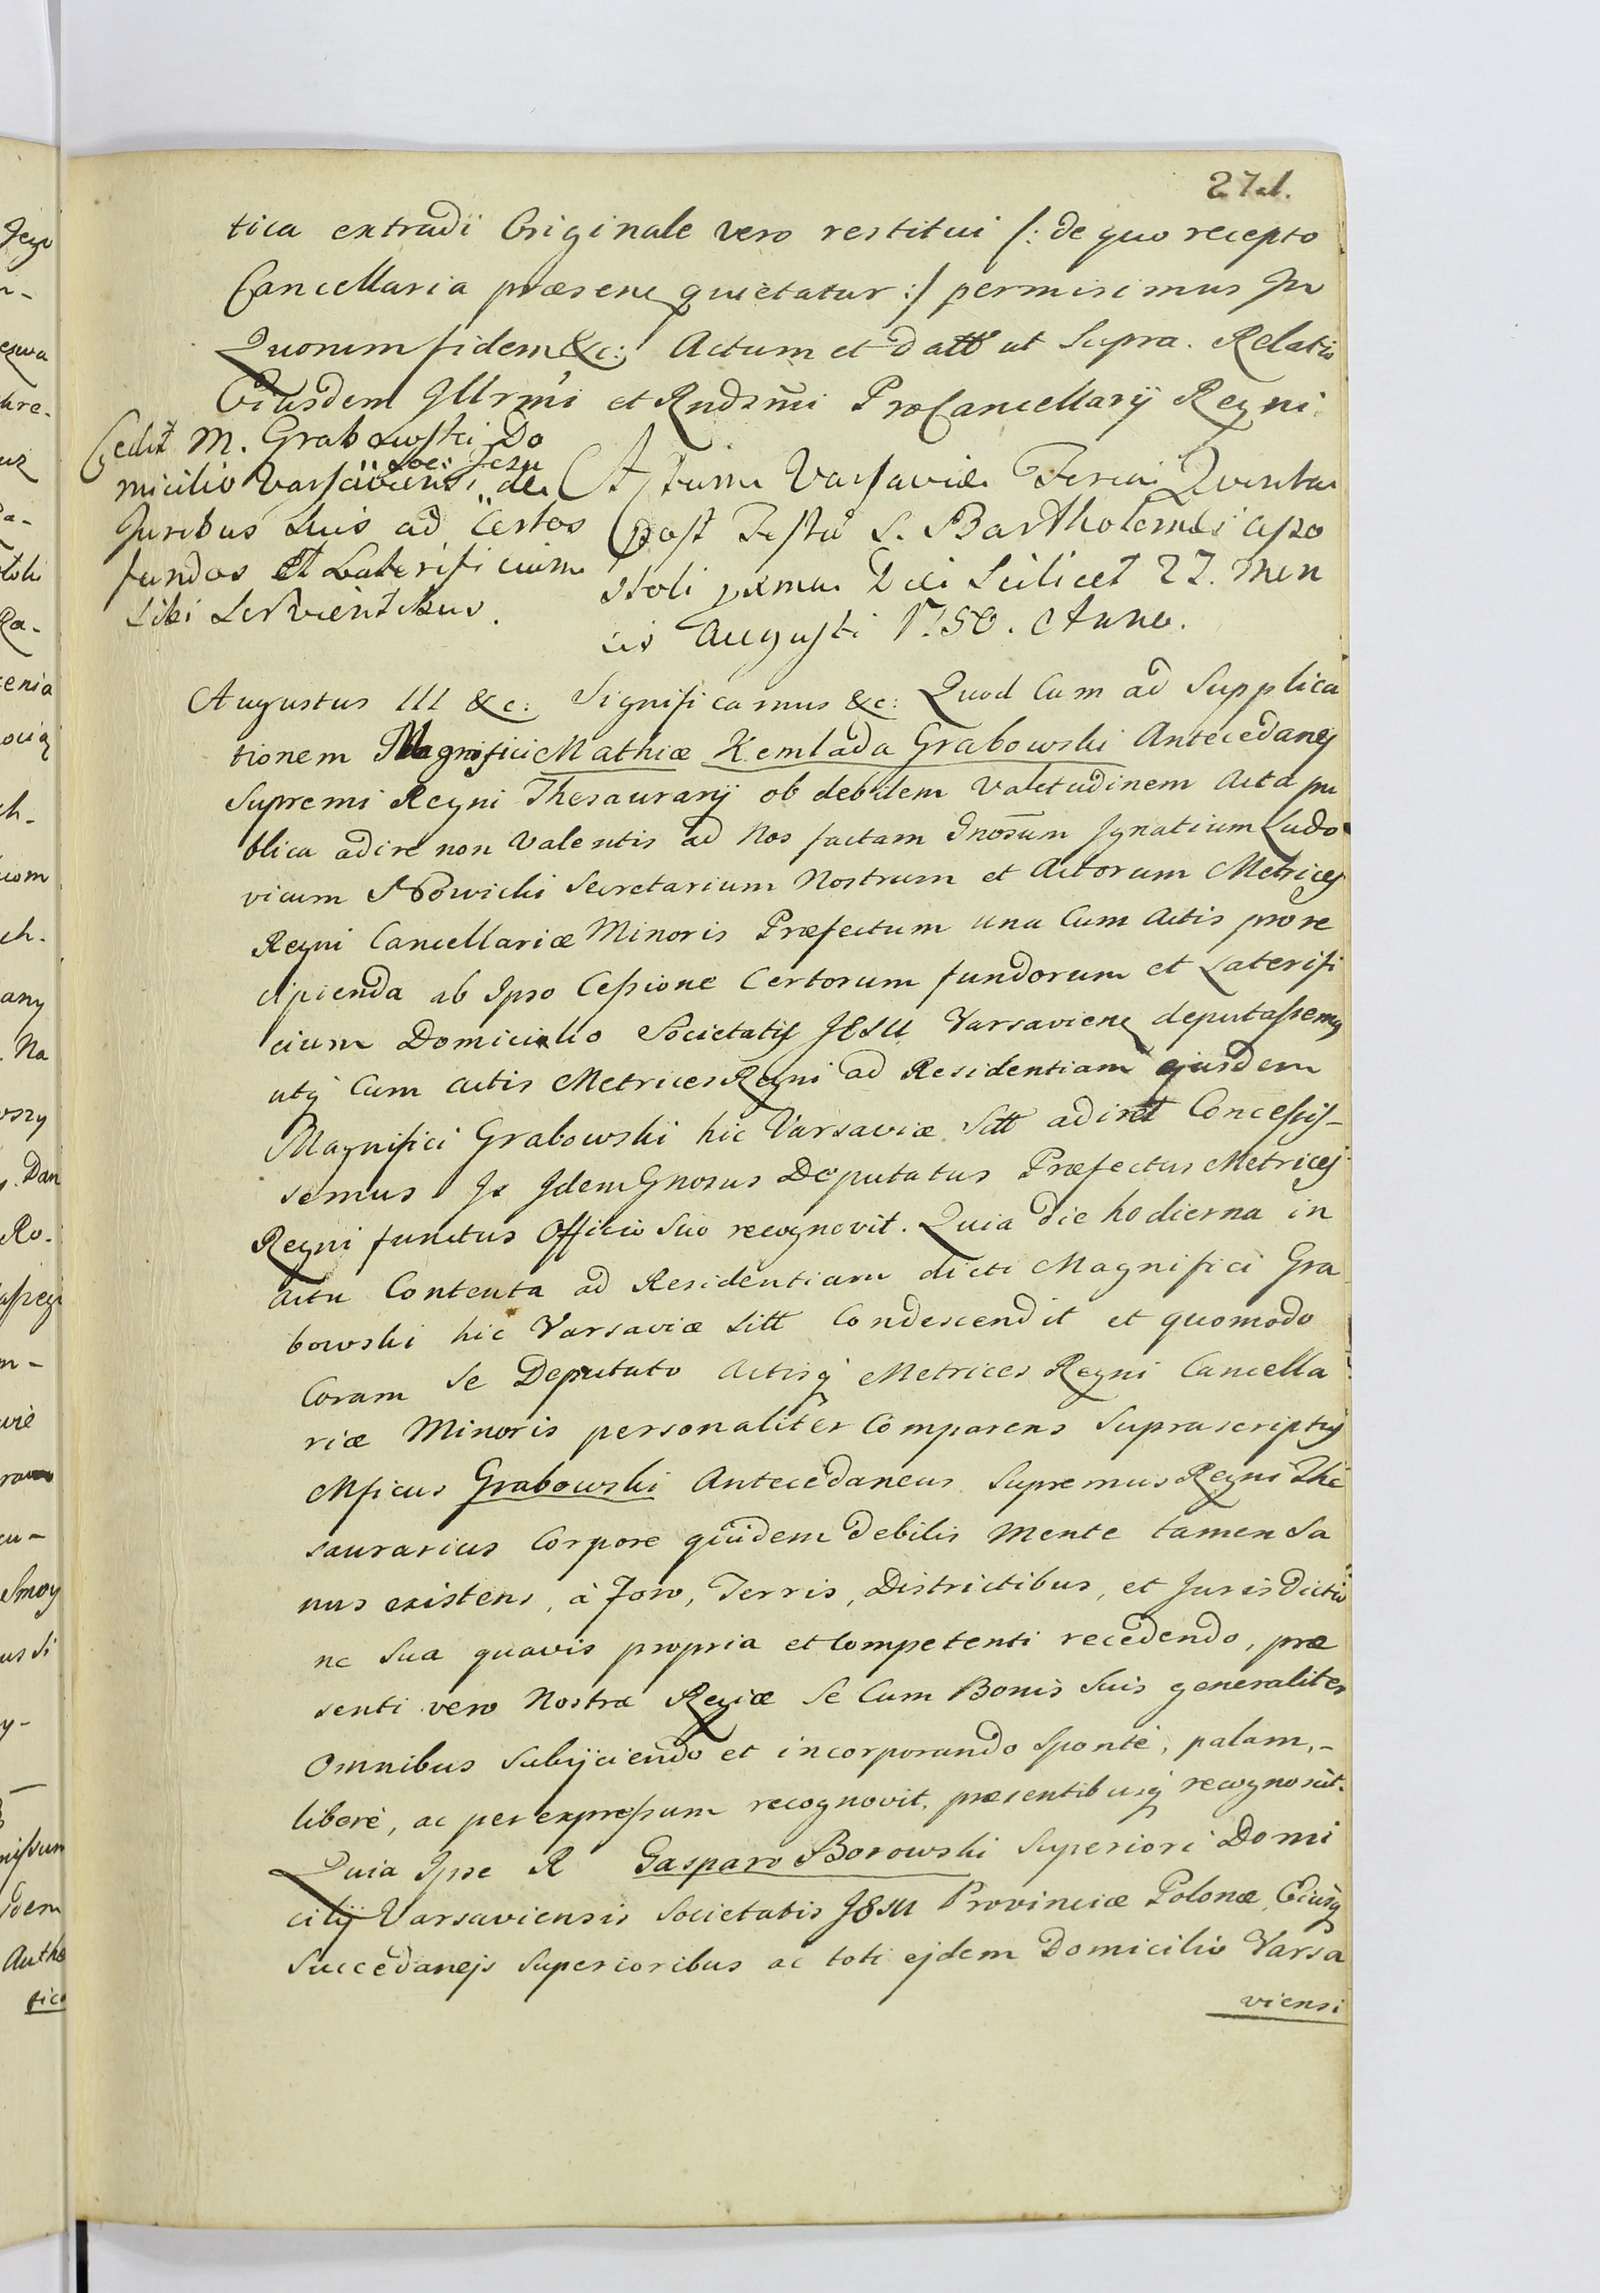 271.
tica extradi Originale vero restitui /: de quo recepto
Cancellaria præsens quietatur :/ permisimus In
Quorum fidem &c: Actum et Datt ut Supra. Relatio
Eiusdem Illrmi et Rndsmi ProCancellarij Regni
Cedit M. Grabowski Do
micilio Varsaviensi Soc: Jesu de
Juribus Suis ad Certos
fundos et Laterificium
Sibi Servientibus.
Actum Varsaviæ Feria Quinta
post Festū S. Bartholomæi Apo
stoli pxma Die Scilicet 27. Men
sis Augusti 1750. Anno.
Augustus III &c: Significamus &c: Quod Cum ad Supplica
tionem Magnifici Mathiæ Kemlada Grabowski Antecedanej
Supremi Regni Thesaurarij ob debilem Valetudinem Acta pu
blica adire non Valentis ad Nos factam Gnosum Ignatium Ludo
vicum Nowicki Secretarium Nostrum et Actorum Metrices
Regni Cancellariæ Minoris Præfectum una Cum Actis pro re
cipienda ab Ipso Cessione Certorum fundorum et Laterifi
cium Domicilio Societatis JESU Varsaviens deputassemus
utq Cum Actis Metrices Regni ad Residentiam ejusdem
Magnifici Grabowski hic Varsaviæ Sitt adiret Concessis-
semus Is Idem Gnosus Deputatus Præfectus Metrices
Regni functus Officio Suo recognovit. Quia die hodierna in
actu Contenta ad Residentiam dicti Magnifici Gra
bowski hic Varsaviæ Sitt Condescendit et quomodo
Coram Se Deputato Actisq Metrices Regni Cancella
riæ Minoris personaliter Comparens Suprascriptus
Mficus Grabowski Antecedaneus Supremus Regni The
saurarius Corpore quidem debilis Mente tamen Sa
nus existens, à Foro, Terris, Districtibus, et Jurisdictio
ne Sua quavis propria et Competenti recedendo, præ
senti vero Nostræ Regiæ Se Cum Bonis Suis generaliter
Omnibus Subijciendo et incorporando Sponte, palam,-
liberè, ac per expressum recognovit, præsentibusq recognoscit.
Quia Ipse R Gasparo Borowski Superiori Domi
cilij Varsaviensis Societatis JESU Provinciæ Polonæ, Eiusq
Succedanejs Superioribus ac toti ejdem Domicilio Varsa
viensi